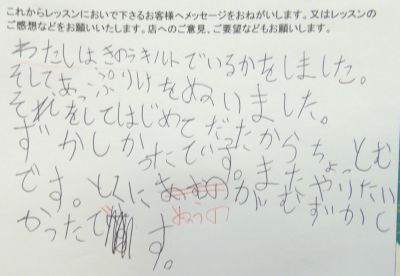 これからレッスンにおいで下さるお客様へメッセージをおねがいします。又はレッスンの
ご感想などをお願いいたします。店へのご意見、ご要望などもお願いします。
わたしはきのうキルトでいるかをしました。
そしてあっぷりけをぬいました。
それをしてはじめてだったからちょっとむ
ずかしかったでいす。またやりたい
です。とくにがむずかし
ぬうの
かったです。